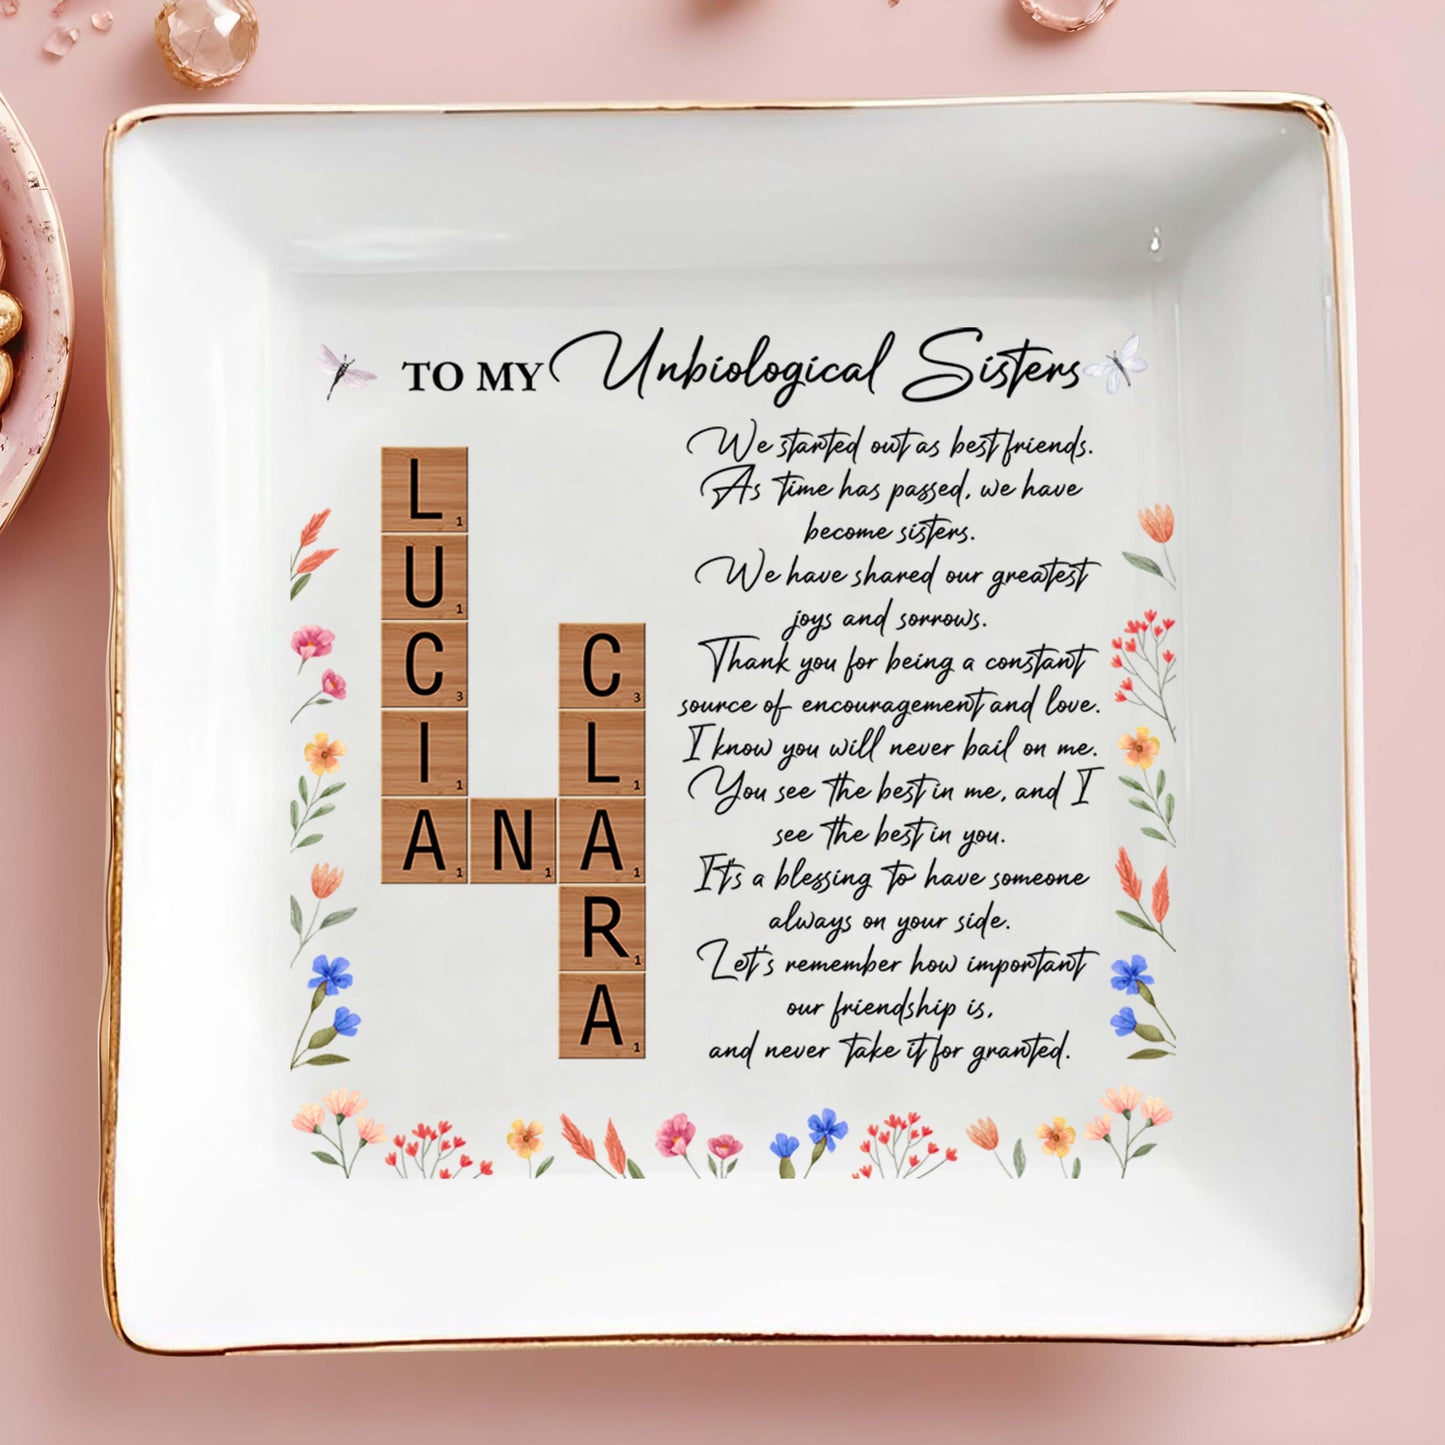 TO MY Unbiological Sisters
L 1
U 1
C 3
I 1
A 1 N 1 A 1
C 3
L 1
R 1
A 1
We started out as best friends.
As time has passed, we have
become sisters.
We have shared our greatest
joys and sorrows.
Thank you for being a constant
source of encouragement and love.
I know you will never bail on me.
You see the best in me, and I
see the best in you.
It's a blessing to have someone
always on your side.
Let's remember how important
our friendship is,
and never take it for granted.